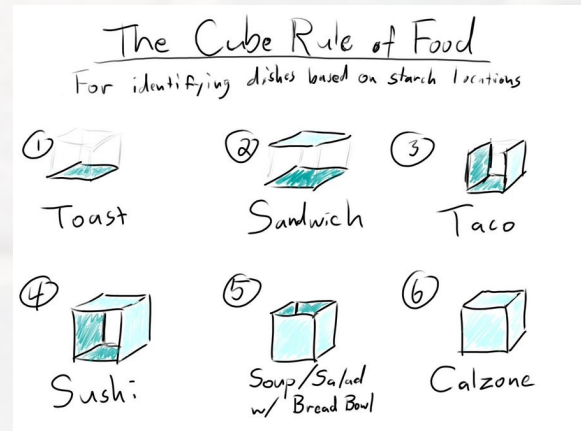 The Cube Rule of Food
For identifying dishes based on starch locations
① ② ③
Toast Sandwich Taco
④ ⑤ ⑥
Sushi Soup/Salad w/ Bread Bowl Calzone